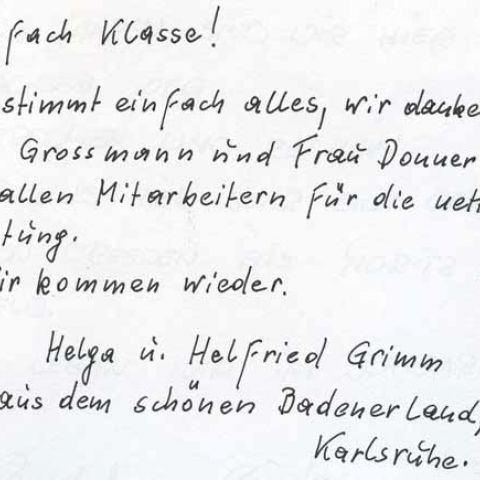 fach Klasse!
stimmt einfach alles, wir danke
Grossmann und Frau Donner
allen Mitarbeitern für die nett
tung.
ir kommen wieder.
Helga u. Helfried Grimm
aus dem schönen Badenerland,
Karlsruhe.